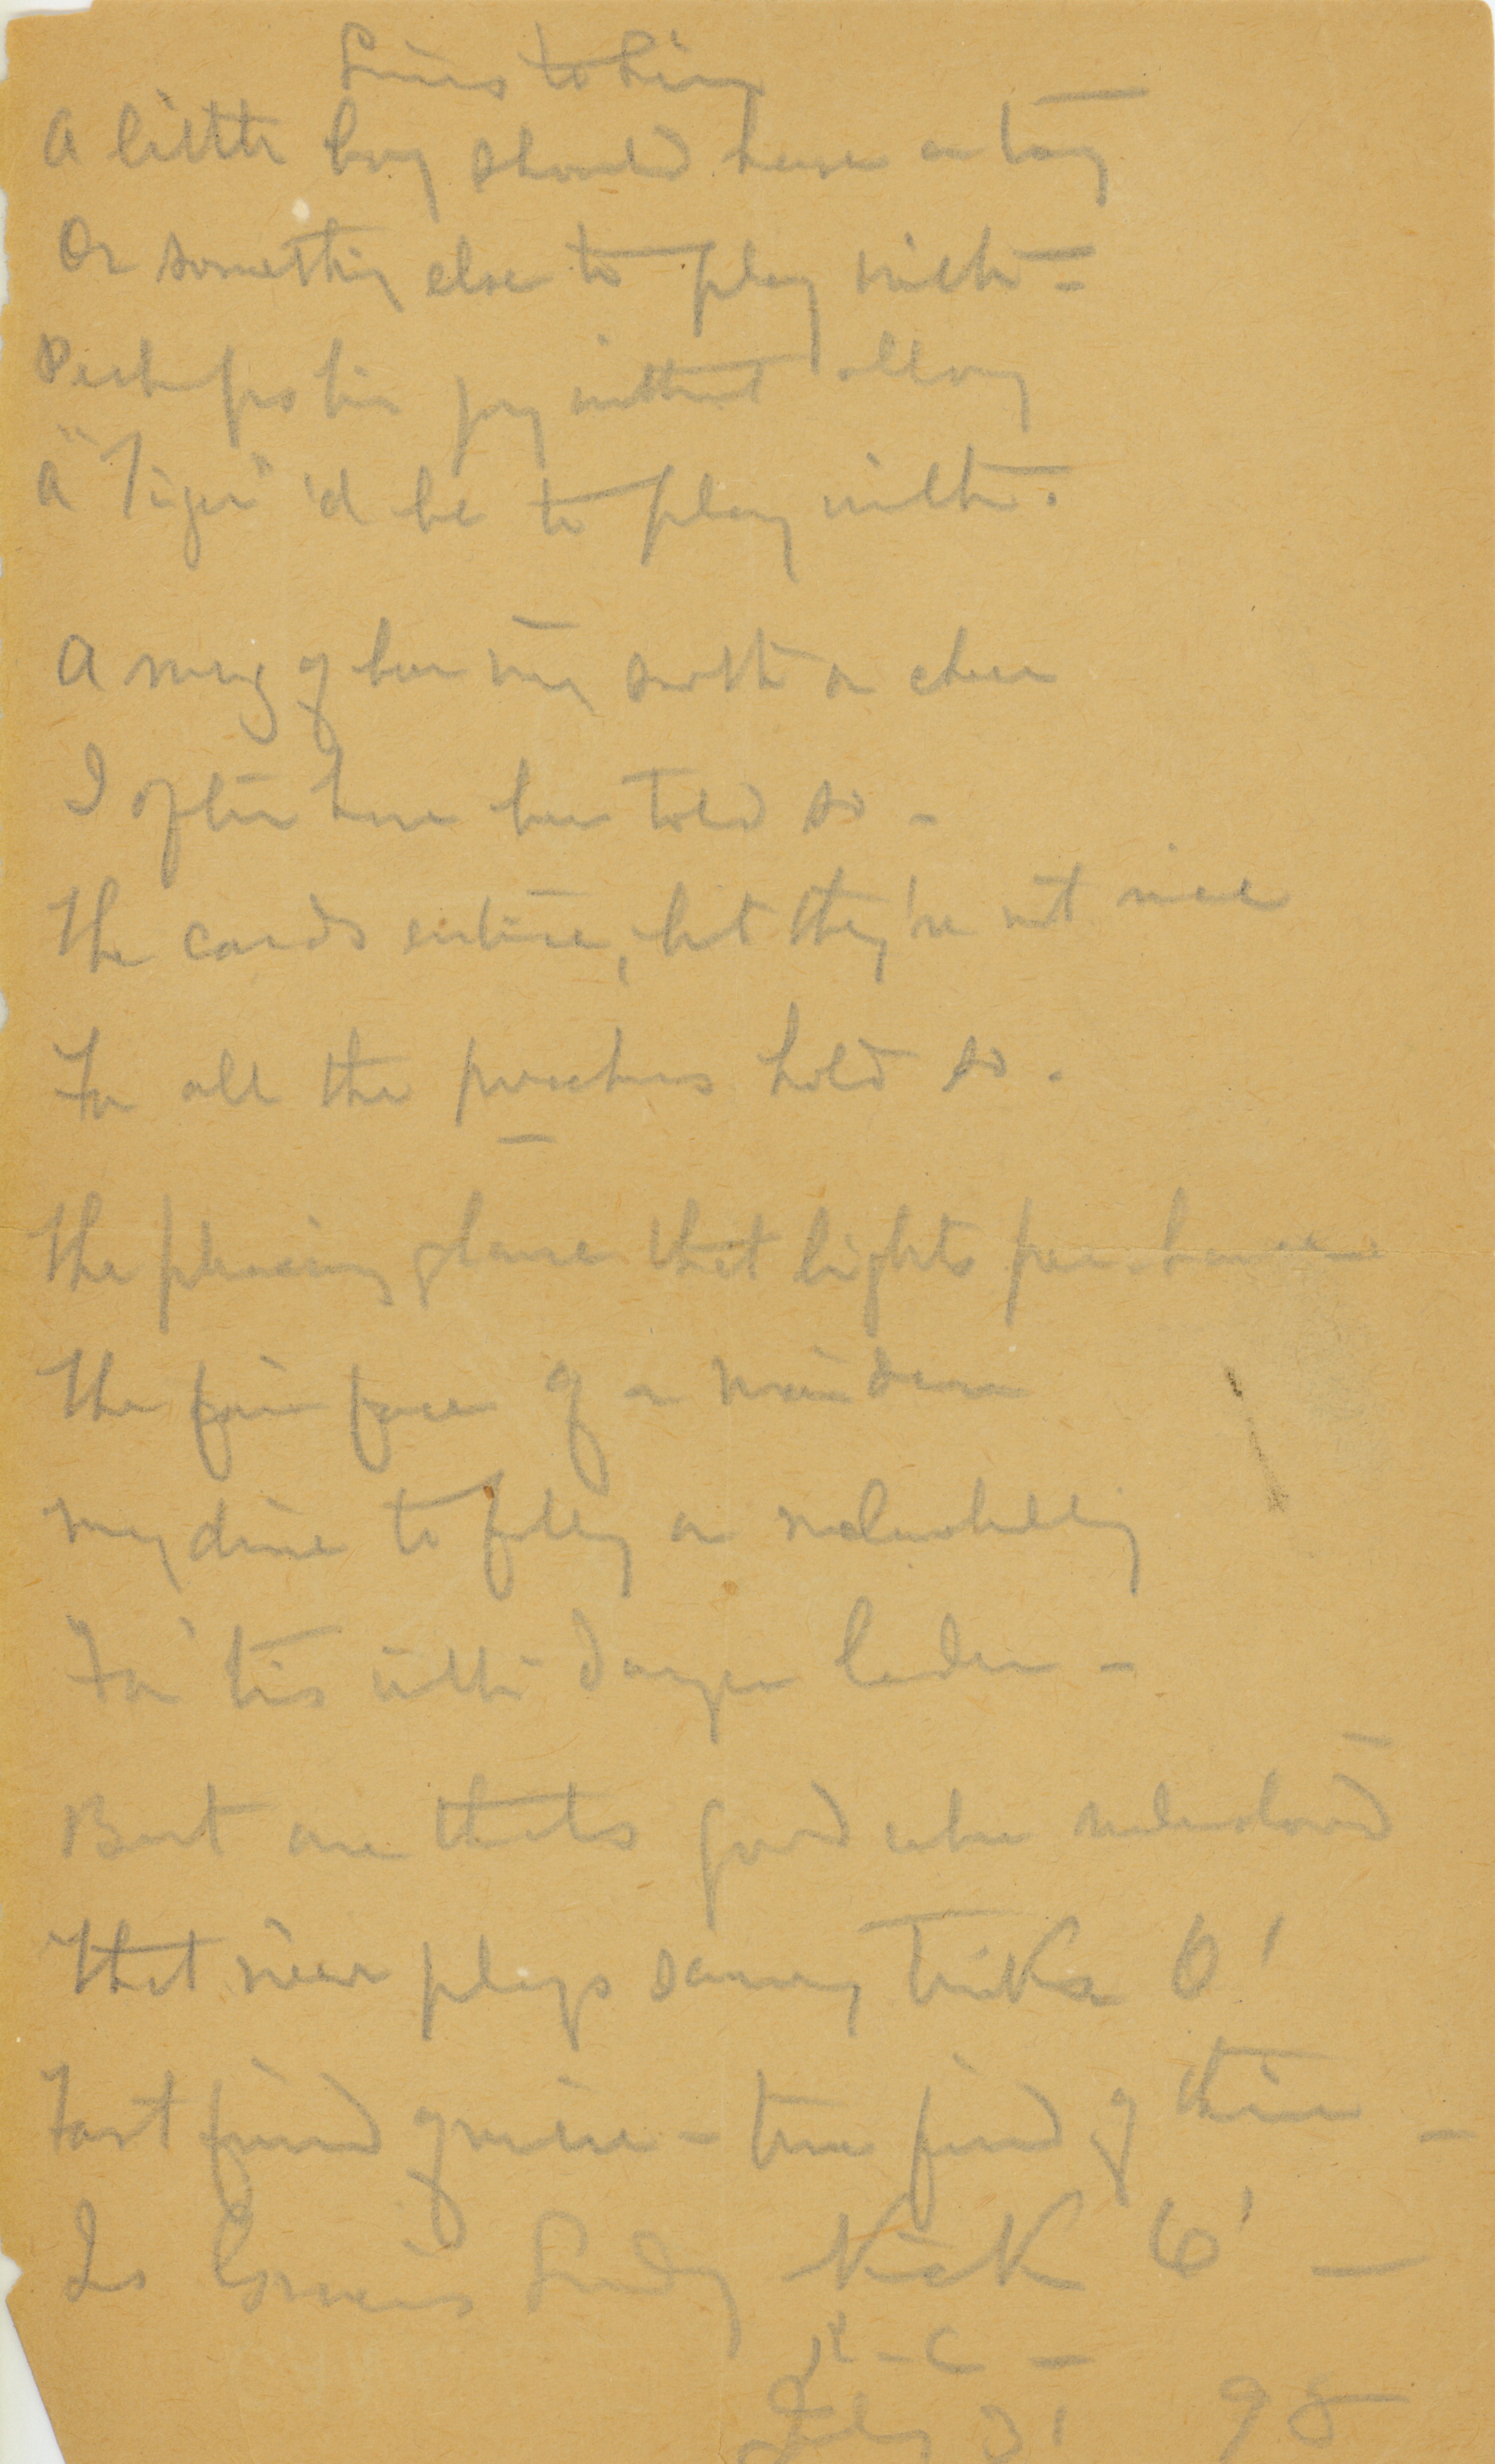 Lines to Him
A little boy should have a toy
Or something else to play with -
Perhaps his joy without alloy
A "Tiger" 'd be to play with.
A mug of beer may soothe or cheer
I often have been told so -
The cards entice, but they're not nice
For all the preachers hold so.
The pleasing glance that lights perchance
The fair face of a maiden
May drive to folly or melancholy
For 'tis with danger laden -
But one that's good when understood
That never plays saucy tricks O'
Fast friend of mine - true friend of thine -
Is Lady Nick O' -
K - C -
July 31 98